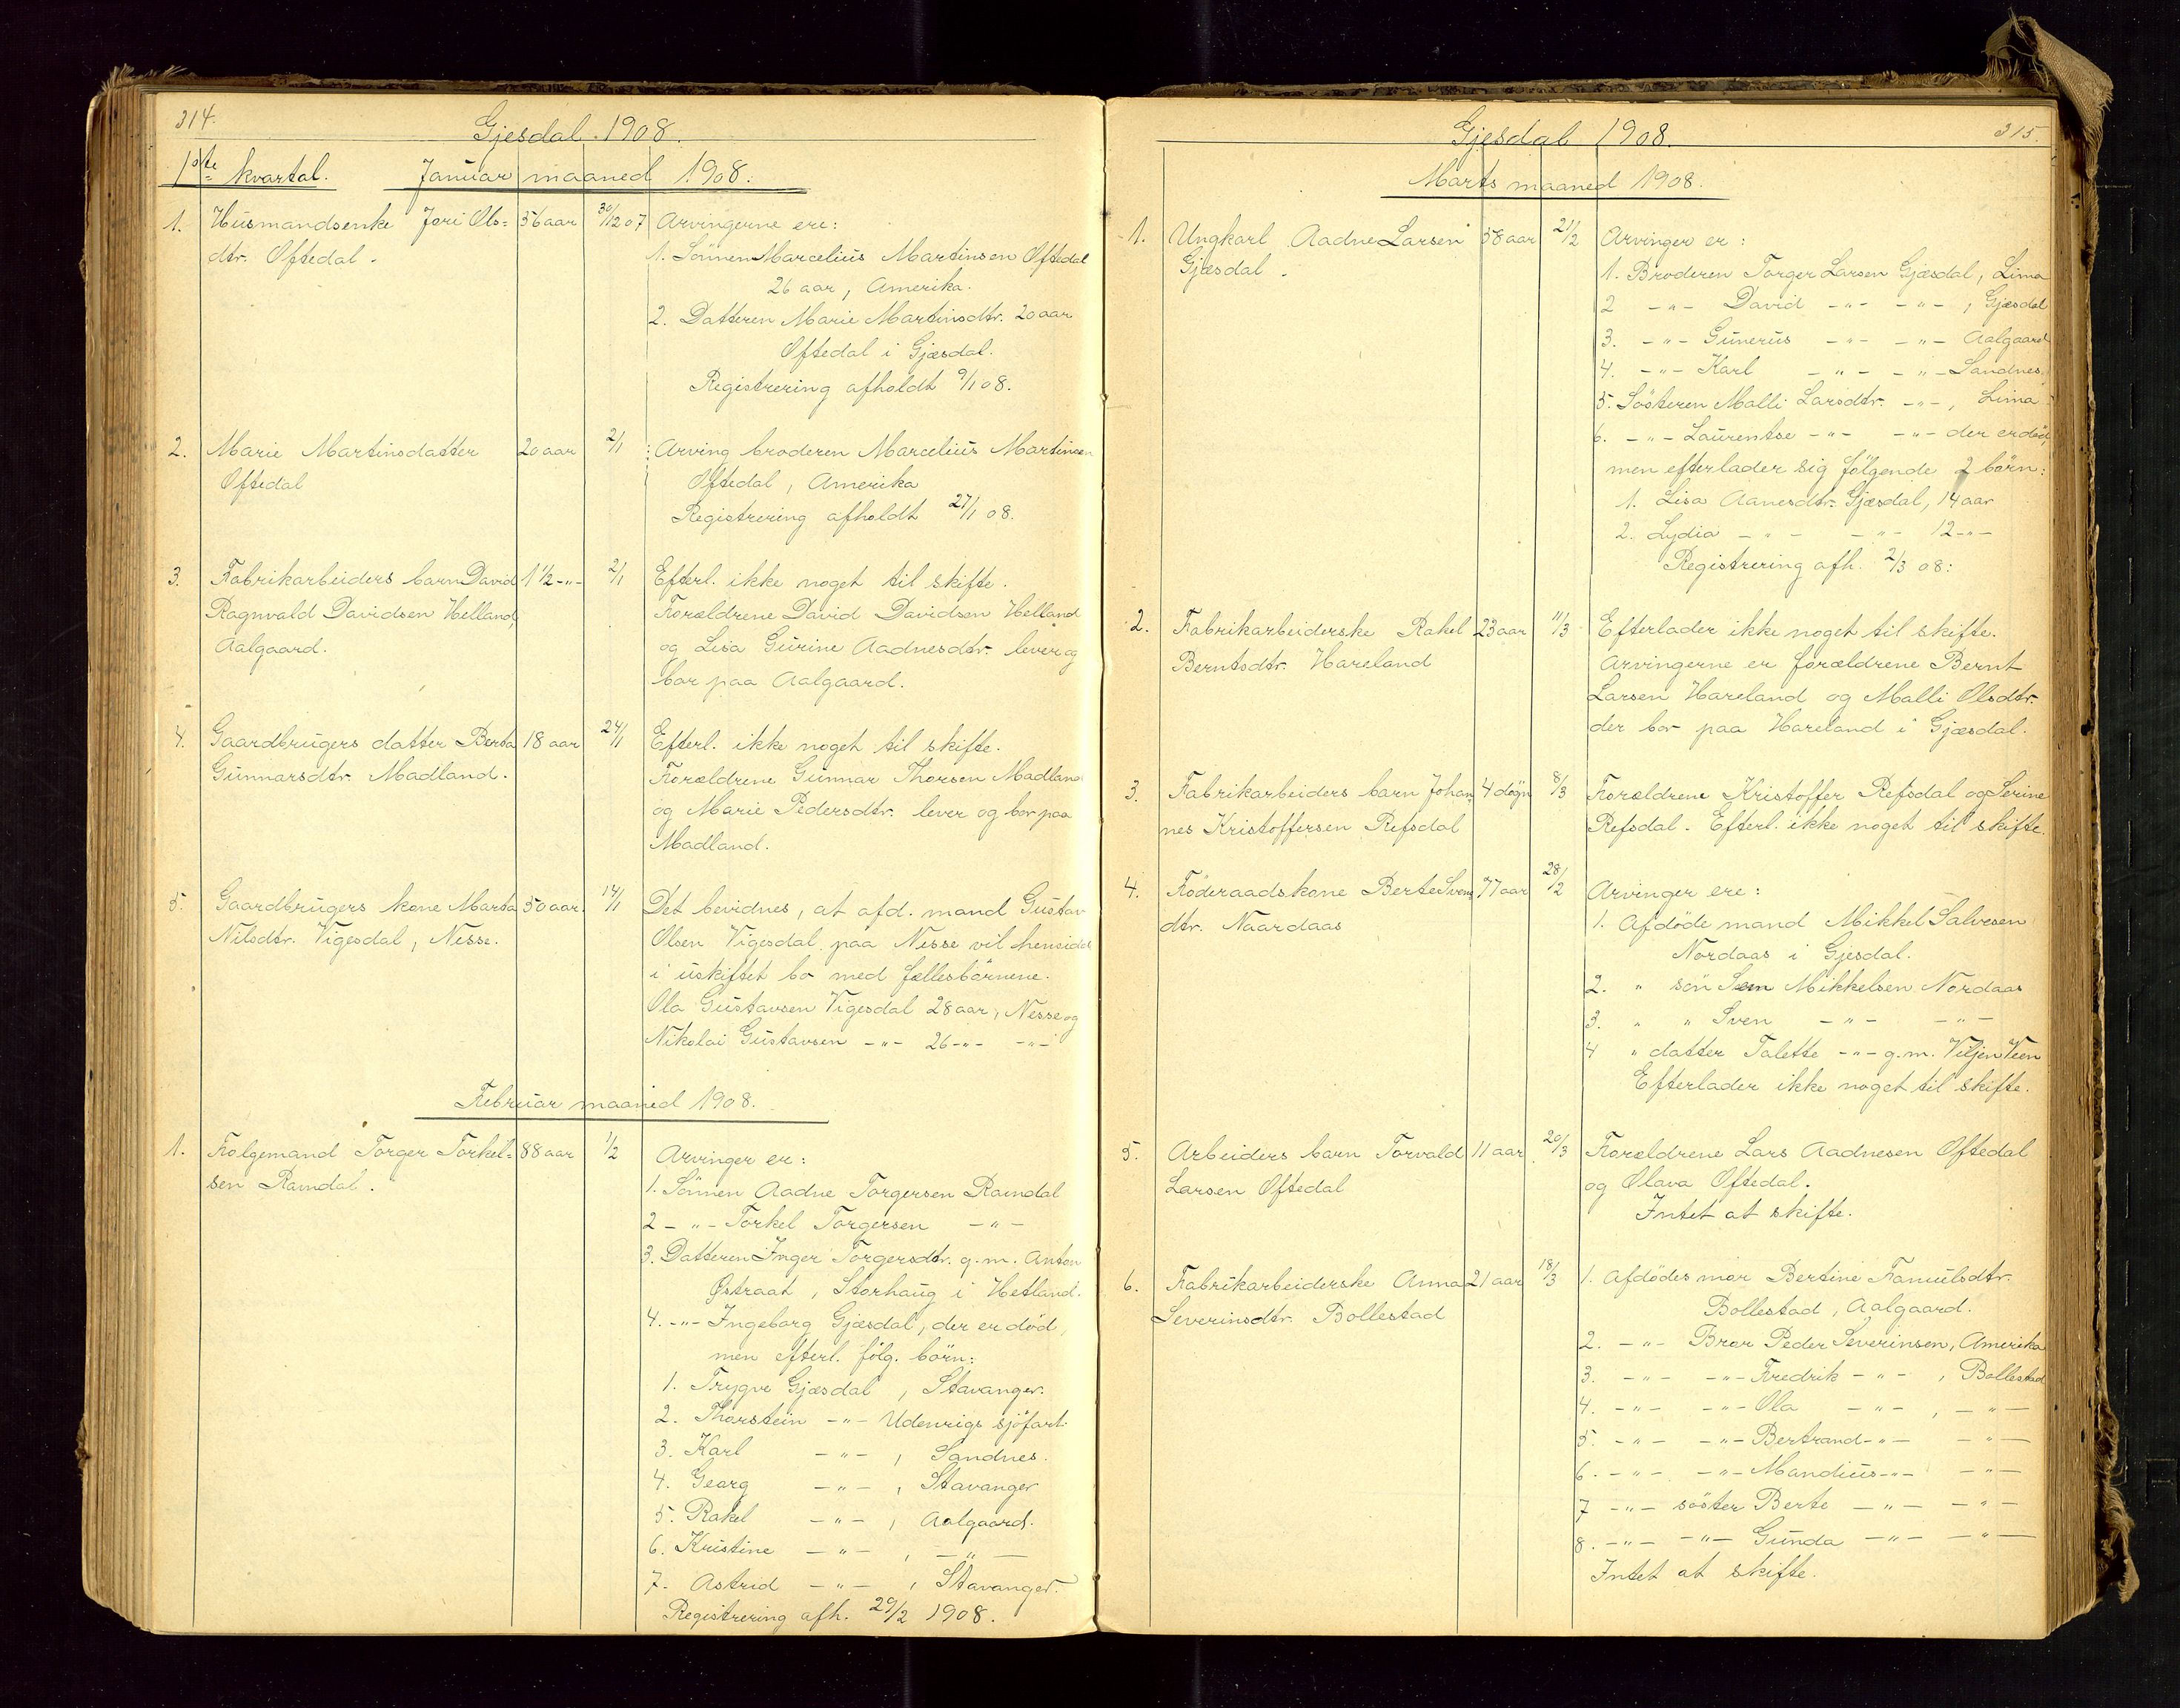 314.
Gjesdal. 1908.
1ste kvartal. Januar maaned 1908.
1. Husmandsenke Jori Ols= 56 aar 30/12 07 Arvingerne ere:
dtr. Oftedal. 1. Sönnen Marcelius Martinsen Oftedal
26 aar, Amerika.
2. Datteren Marie Martinsdtr. 20 aar
Oftedal i Gjæsdal.
Registrering afholdt 9/1 08.
2. Marie Martinsdatter 20 aar 2/1 Arving broderen Marcelius Martinsen
Oftedal Oftedal, Amerika
Registrering afholdt 27/1 08.
3. Fabrikarbeiders barn David 1 1/2 -"- 2/1 Efterl. ikke noget til skifte.
Ragnvald Davidsen Helland, Forældrene David Davidsen Helland
Aalgaard. og Lisa Gurine Aadnesdtr. lever og
bor paa Aalgaard.
4. Gaardbrugers datter Berta 18 aar 24/1 Efterl. ikke noget til skifte.
Gunnarsdtr. Madland. Forældrene Gunnar Thorsen Madland
og Marie Pedersdtr. lever og bor paa
Madland.
5. Gaardbrugers kone Marta 50 aar. 14/1 Det bevidnes, at afd. mand Gustav
Nilsdtr. Vigesdal, Nesse. Olsen Vigesdal paa Nesse vil hensidde
i uskiftet bo med fællesbörnene.
Ola Gustavsen Vigesdal 28 aar, Nesse og
Nikolai Gustavsen -"- 26 -"- -"-
Februar maaned 1908.
1. Folgemand Torger Torkel= 88 aar 1/2 Arvinger er:
sen Ramdal. 1. Sönnen Aadne Torgersen Ramdal
2 -"- Torkel Torgersen -"-
3. Datteren Inger Torgersdtr. g.m. Anton
Østraat, Storhaug i Hetland.
4. -"- Ingeborg Gjæsdal, der er död,
men efterl. fölg. börn:
1. Trygve Gjæsdal, Stavanger.
2. Thorstein -"- Udenrigs sjöfart.
3. Karl -"- , Sandnes.
4. Georg -"- , Stavanger
5. Rakel -"- , Aalgaard.
6. Kristine -"- , -"-
7. Astrid -"- , Stavanger.
Registrering afh. 29/2 1908.
315.
Gjesdal 1908.
Marts maaned 1908.
1. Ungkarl Aadne Larsen 58 aar 21/2 Arvinger er:
Gjæsdal. 1. Broderen Torger Larsen Gjæsdal, Lima
2 -"- David -"- -"- , Gjæsdal
3. -"- Gunerius -"- -"- Aalgaard
4. -"- Karl -"- -"- Sandnes,
5. Söšteren Malli Larsdtr. -"- , Lima
6. -"- Laurentse -"- -"- der er död,
men efterlader sig fölgende 2 börn:
1. Lisa Aanesdtr. Gjæsdal, 14 aar
2. Lydia -"- -"- 12 -"-
Registrering afh. 2/3 08:
2. Fabrikarbeiderske Rakel 23 aar 11/3 Efterlader ikke noget til skifte.
Berntsdtr. Hareland Arvingerne er forældrene Bernt
Larsen Hareland og Malli Olsdtr.
der bor paa Hareland i Gjæsdal.
3. Fabrikarbeiders barn Johan= 4 dögn 8/3 Forældrene Kristoffer Refsdal og Serine
nes Kristoffersen Refsdal Refsdal. Efterl. ikke noget til skifte.
4. Föderaadskone Berte Svens 77 aar 28/2 Arvinger ere:
dtr. Naardaas 1. Afdöde mand Mikkel Salvesen
Nordaas i Gjesdal.
2. " sön Sem Mikkelsen Nordaas
3. " " Sven -"- -"-
4 " datter Talette -"- g.m. Viljen Veen
Efterlader ikke noget til skifte.
5. Arbeiders barn Torvald 11 aar 20/3 Forældrene Lars Aadnesen Oftedal
Larsen Oftedal og Olava Oftedal.
Intet at skifte.
6. Fabrikarbeiderske Anna 21 aar 18/3 1. Afdödes mor Bertine Samulsdtr.
Severinsdtr. Bollestad Bollestad, Aalgaard.
2. -"- Bror Peder Severinsen, Amerika
3. -"- -"- Fredrik -"- , Bollestad
4. -"- -"- Ola -"- , -"-
5. -"- -"- Bertrand -"- -"-
6. -"- -"- Mandius -"- -"-
7 -"- söster Berte -"- -"-
8. -"- -"- Gunda -"- -"-
Intet at skifte.